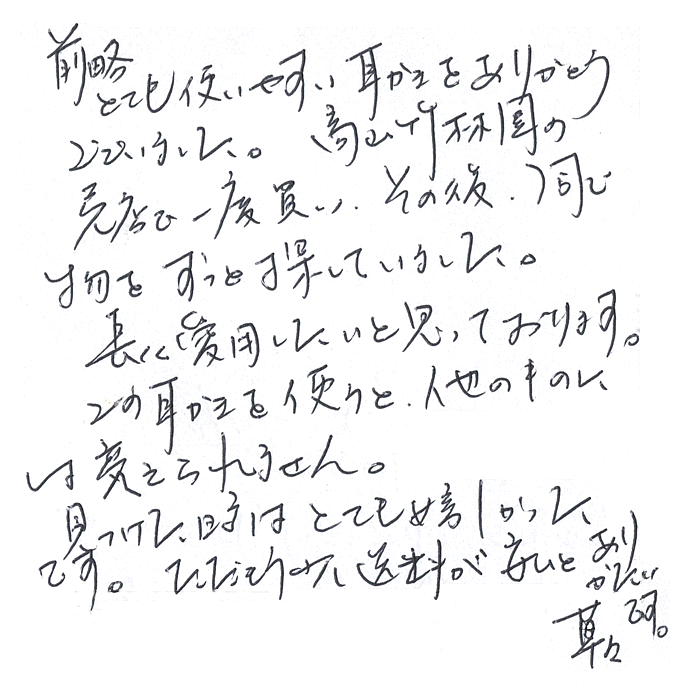 前略
とても使いやすい耳かきをありがとう
ございました。高山竹林園の
売店で一度買い、その後、同じ
物をずっと探していました。
長く愛用したいと思っております。
この耳かきを使うと、他のものに
は変えられません。
見つけた時はとても嬉しかった
です。ただもう少し送料が安いとあり
がたい
です。
草々